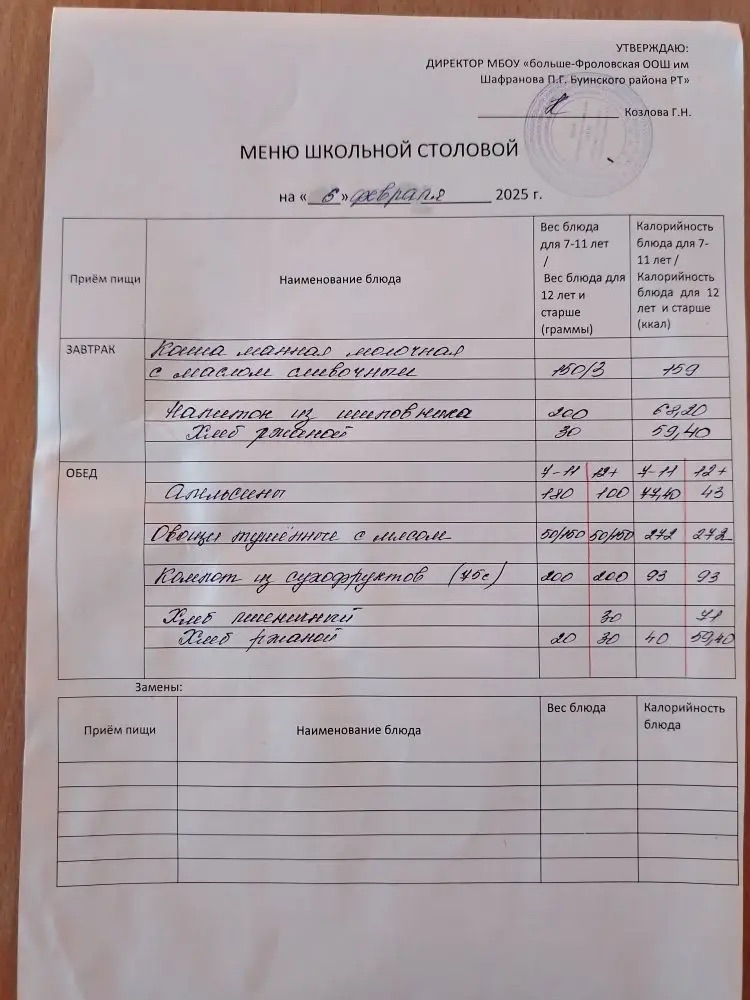 УТВЕРЖДАЮ:
ДИРЕКТОР МБОУ «больше-Фроловская ООШ им
Шафранова П.Г. Буинского района РТ»
Козлова Г.Н.
МЕНЮ ШКОЛЬНОЙ СТОЛОВОЙ
на « 5 » февраля 2025 г.
Приём пищи
Наименование блюда
Вес блюда
для 7-11 лет
/
Вес блюда для
12 лет и
старше
(граммы)
Калорийность
блюда для 7-
11 лет /
Калорийность
блюда для 12
лет и старше
(ккал)
ЗАВТРАК Каша манная молочная
с маслом сливочным 150/3 159
Напиток из шиповника 200 68,20
Хлеб ржаной 30 59,40
ОБЕД 7-11 12+ 7-11 12+
Апельсины 180 100 77,40 43
Овощи тушённые с мясом 50/150 50/150 272 272
Компот из сухофруктов (75с) 200 200 93 93
Хлеб пшеничный 30 71
Хлеб ржаной 20 30 40 59,40
Замены:
Приём пищи Наименование блюда Вес блюда Калорийность
блюда